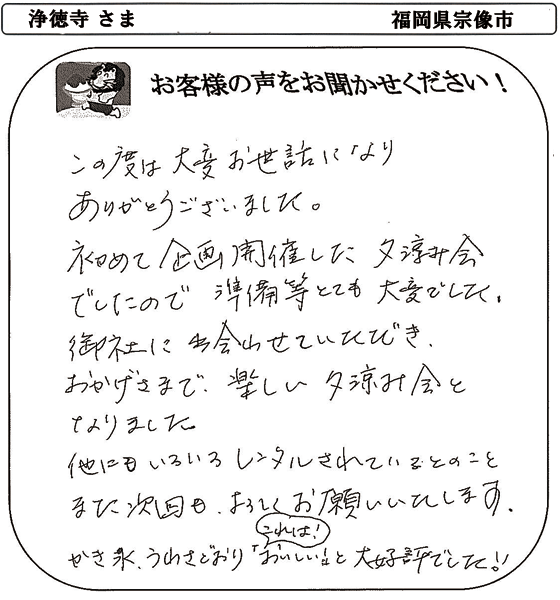 浄徳寺 さま
福岡県宗像市
お客様の声をお聞かせください！
この度は 大変 お世話になり
ありがとうございました。
初めて 企画 開催した 夕涼み会
でしたので 準備等とても 大変でした。
御社に 出会わせていただき、
おかげさまで、楽しい 夕涼み会と
なりました。
他にも いろいろ レンタルされているとのこと
また 次回も、よろしく お願いいたします。
これは！
かき氷、うわさどおり「おいしい!」と 大好評でした!!